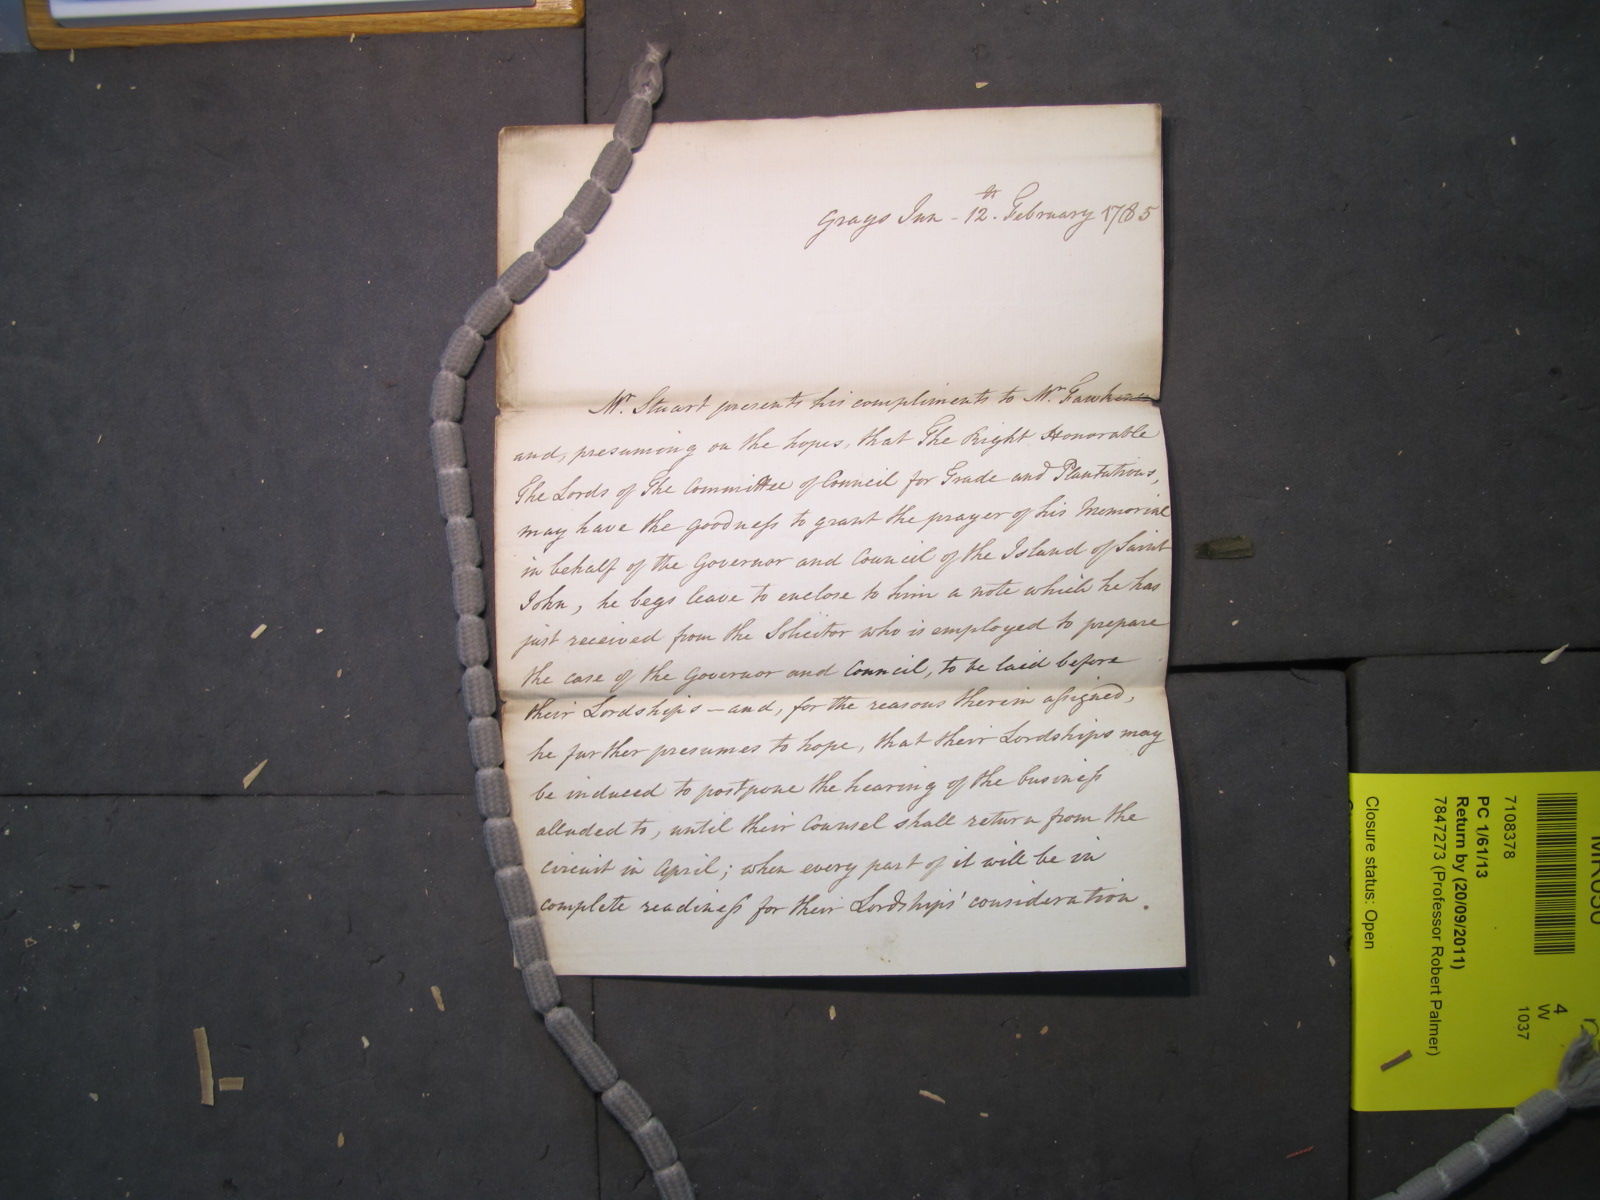 Grays Inn - 12.th February 1785
Mr. Stuart presents his compliments to Mr. Fawkener
and, presuming on the hopes, that The Right Honorable
The Lords of The Committee of Council for Trade and Plantations,
may have the goodneſs to grant the prayer of his Memorial
in behalf of the Governor and Council of the Island of Saint
John, he begs leave to enclose to him a note which he has
just received from the Solicitor who is employed to prepare
the case of the Governor and Council, to be laid before
their Lordships – and, for the reasons therein aſsigned,
he further presumes to hope, that their Lordships may
be induced to postpone the hearing of the busineſs
alluded to, until their Counsel shall return from the
circuit in April; when every part of it will be in
complete readineſs for their Lordships' consideration.
7108378
PC 1/61/13
Return by (20/09/2011)
7847273 (Professor Robert Palmer)
Closure status: Open
4
W
1037